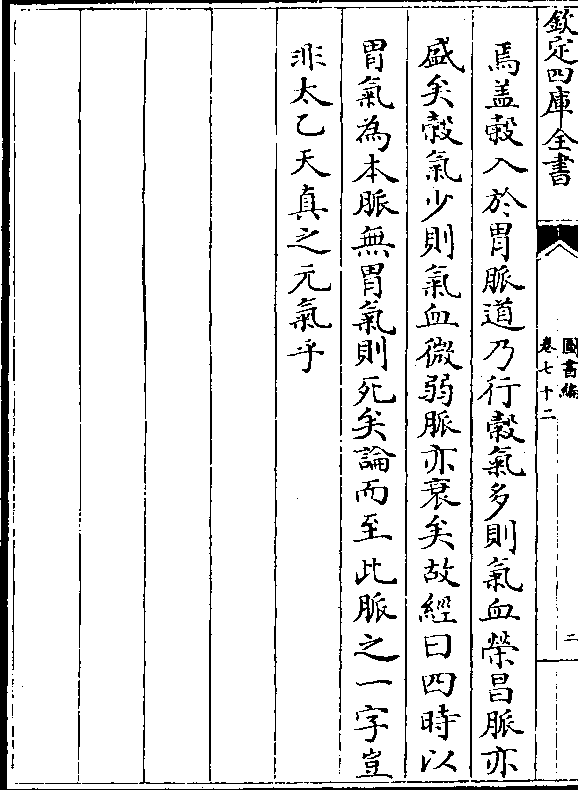 欽定四庫全書
圖書編
卷七十二
二
焉盖榖入於胃脈道乃行榖氣多則氣血榮昌脈亦
盛矣榖氣少則氣血微弱脈亦衰矣故經曰四時以
胃氣為本脈無胃氣則死矣論而至此脈之一字豈
非太乙天真之元氣乎